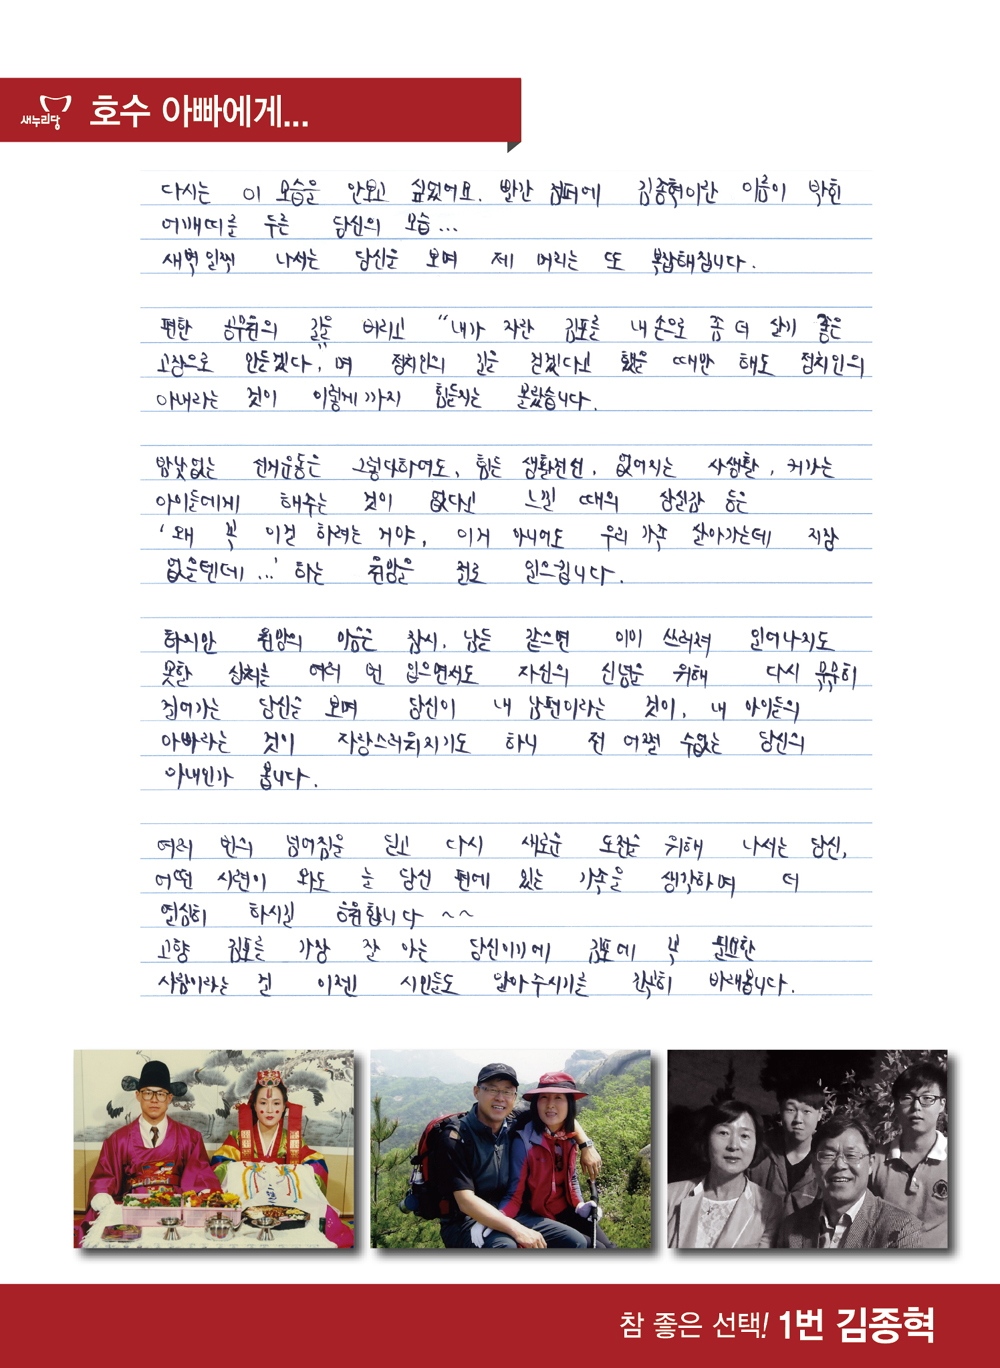 새누리당 호수 아빠에게...
다시는 이 모습을 안보고 싶었어요. 빨간 점퍼에 김종혁이란 이름이 박힌
어깨띠를 두른 당신의 모습...
새벽 일찍 나서는 당신을 보며 제 머리는 또 복잡해집니다.
편한 공무원의 길을 버리고 “내가 자란 김포를 내 손으로 좀 더 살기 좋은
고장으로 만들겠다.”며 정치인의 길을 걷겠다고 했을 때만 해도 정치인의
아내라는 것이 이렇게까지 힘들지는 몰랐습니다.
밤낮없는 선거운동은 그렇다하여도, 힘든 생활전선, 없어지는 사생활, 커가는
아이들에게 해주는 것이 없다고 느낄 때의 상실감 등은
‘왜 꼭 이걸 하려는 거야, 이거 아니어도 우리 가족 살아가는데 지장
없을텐데...’ 하는 원망을 절로 일으킵니다.
하지만 원망의 마음은 잠시. 남들 같으면 이미 쓰러져 일어나지도
못할 상처를 여러 번 입으면서도 자신의 신념을 위해 다시 묵묵히
걸어가는 당신을 보며 당신이 내 남편이라는 것이, 내 아이들의
아빠라는 것이 자랑스러워지기도 하니 전 어쩔 수없는 당신의
아내인가 봅니다.
여러 번의 넘어짐을 딛고 다시 새로운 도전을 위해 나서는 당신,
어떤 시련이 와도 늘 당신 편에 있는 가족을 생각하며 더
열심히 하시길 응원합니다 ~~
고향 김포를 가장 잘 아는 당신이기에 김포에 꼭 필요한
사람이라는 걸 이젠 시민들도 알아주시기를 간절히 바래봅니다.
참 좋은 선택! 1번 김종혁